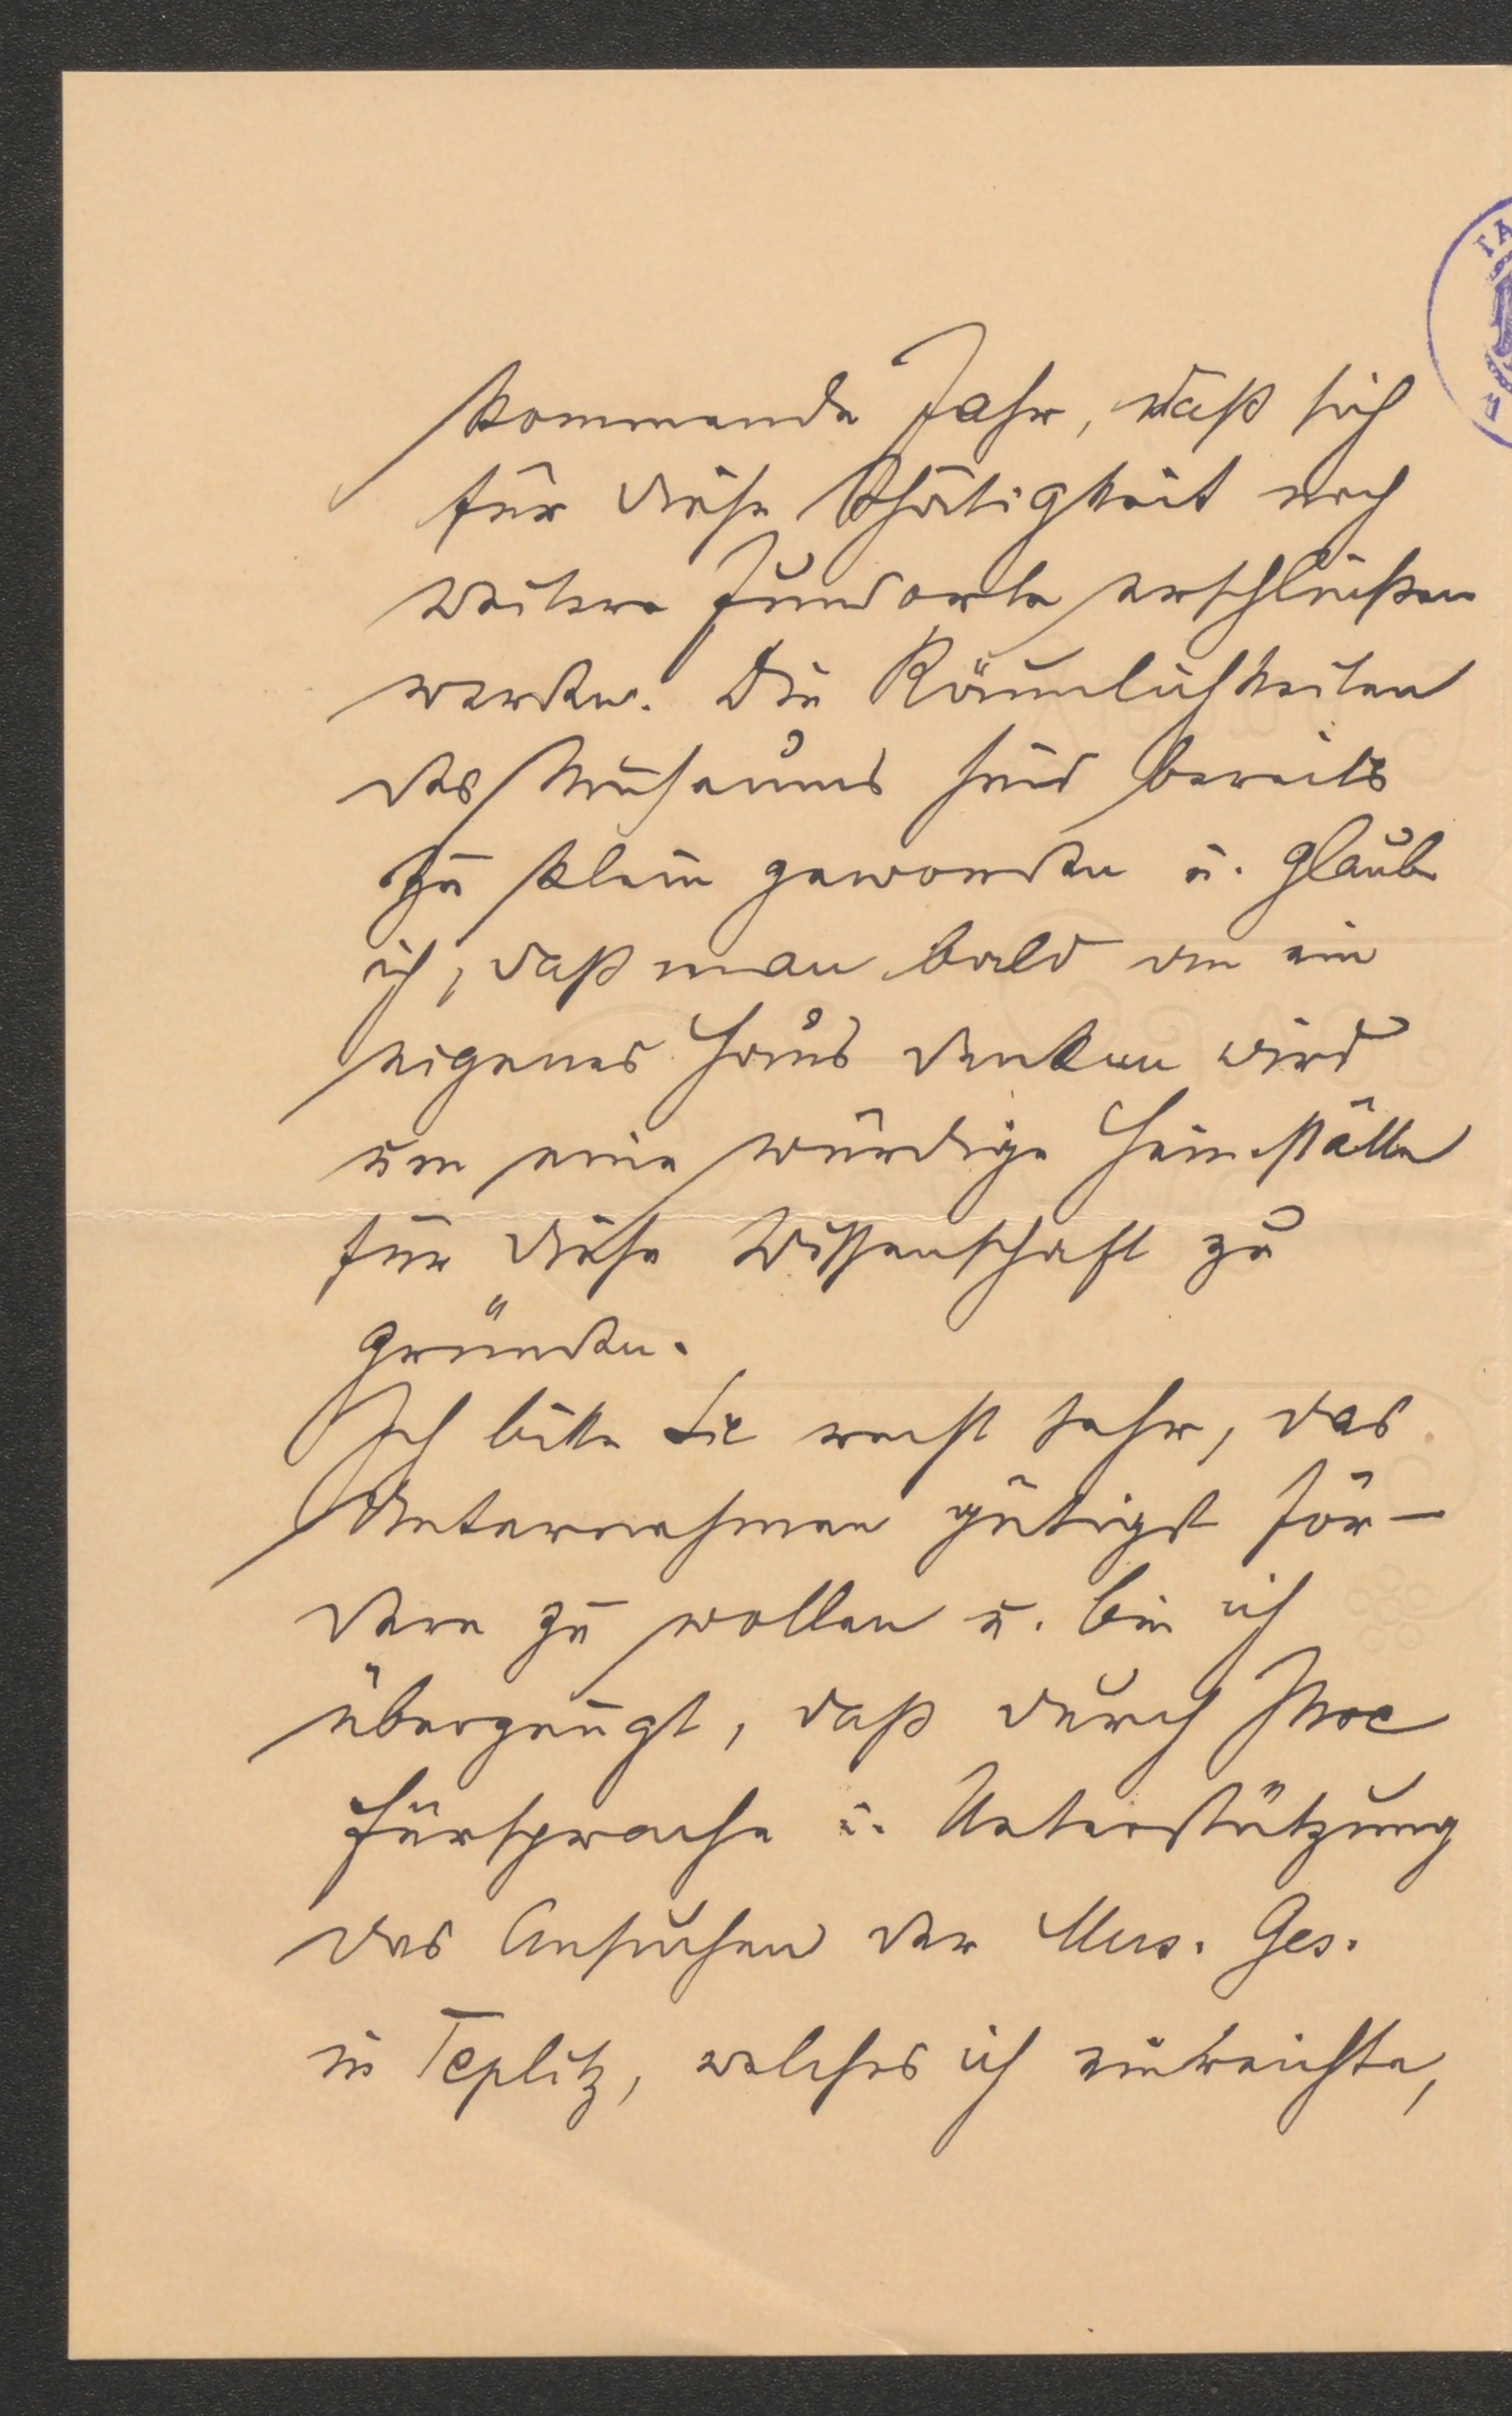 kommende Jahr, daß sich
für diese Thätigkeit noch
weitere Fundorte erschließen
werden. Die Räumlichkeiten
des Museums sind bereits
zu klein geworden u. glaube
ich, daß man bald an ein
eigenes Haus denken wird
um eine würdige Heimstätte
für diese Wissenschaft zu
gründen.
Ich bitte Sie recht sehr, das
Unternehmen gütigst för-
dern zu wollen u. bin ich
überzeugt, daß durch Ihre
Fürsprache u. Unterstützung
das Ansuchen der Mus. Ges.
in Teplitz, welches ich einreichte,